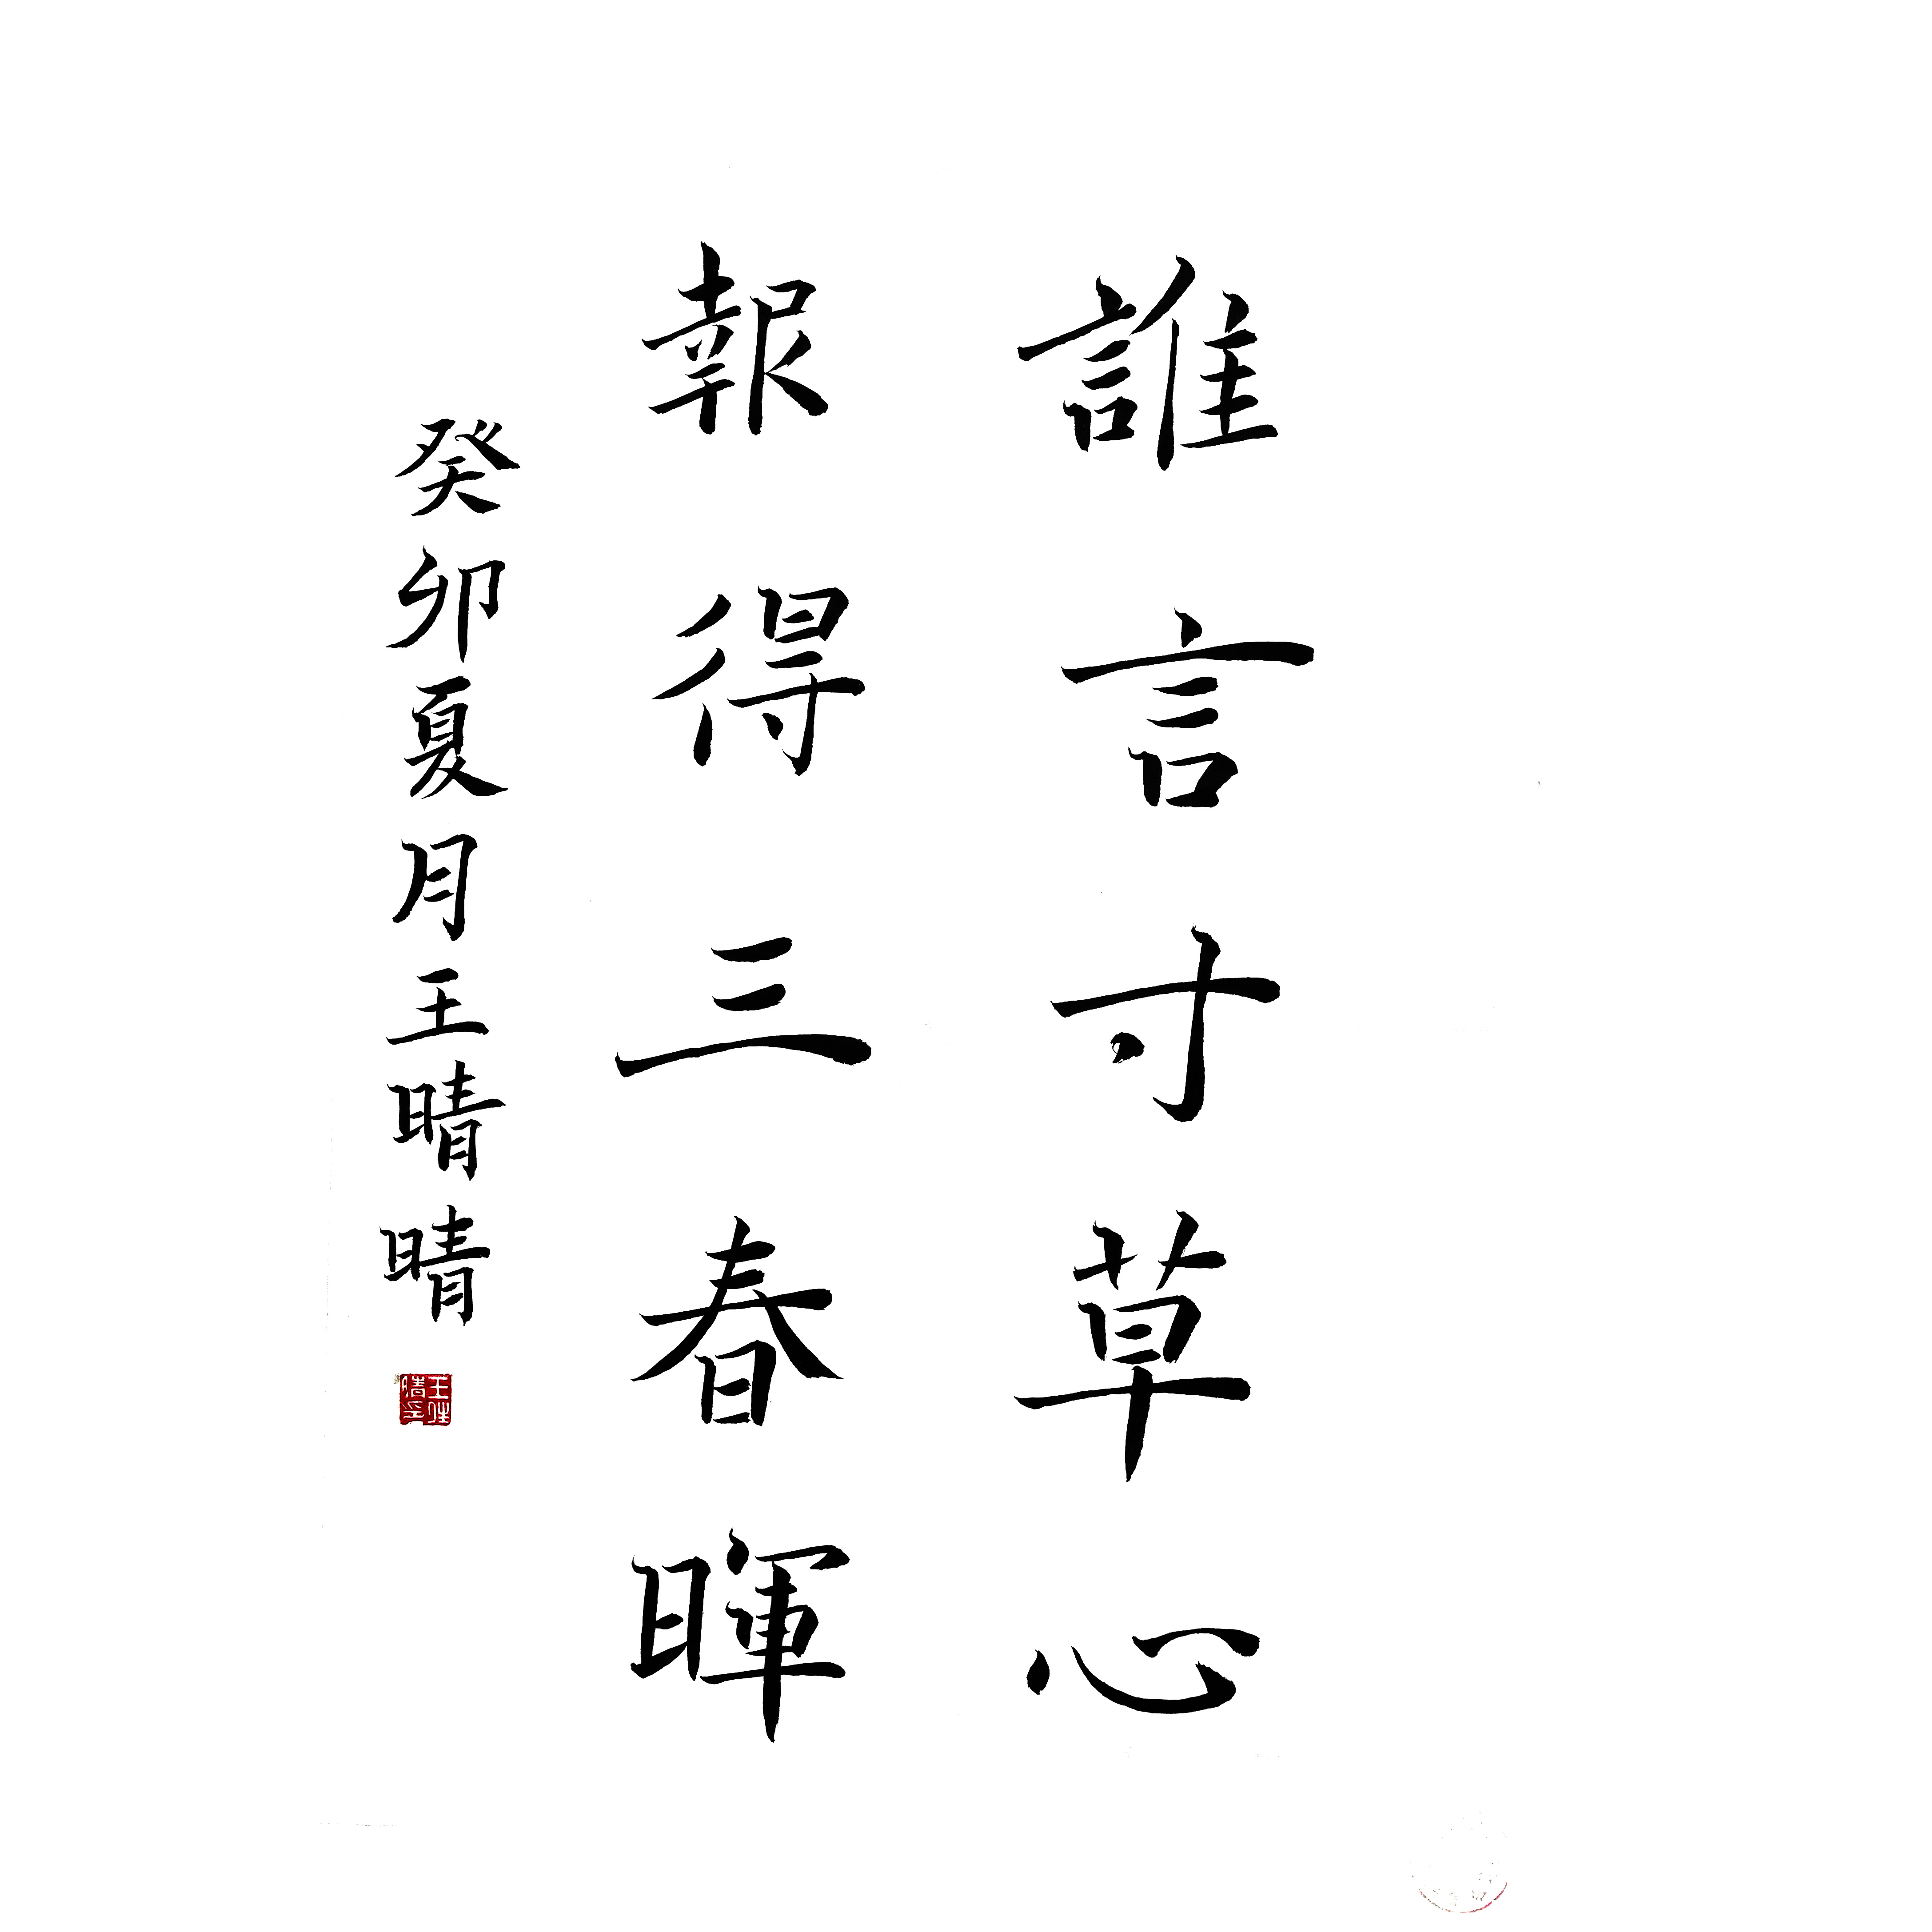 誰言寸草心
報得三春暉
癸卯夏月王晴晴